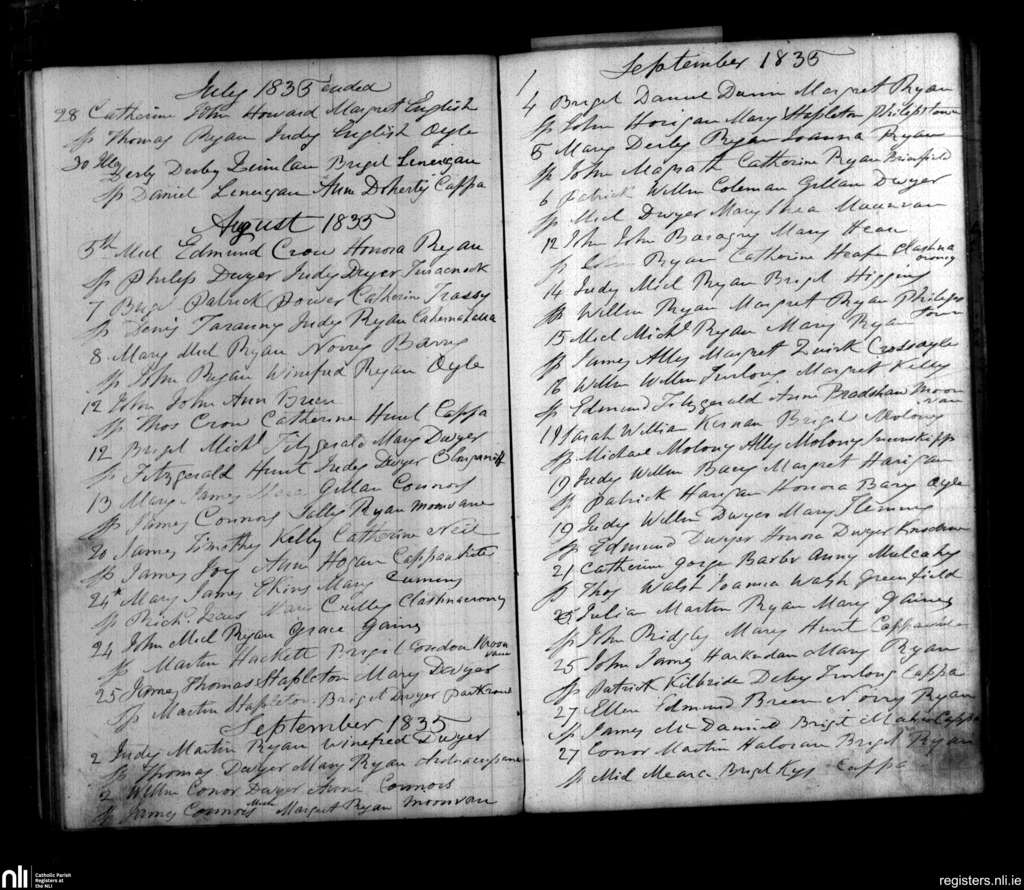 July 1835 ended
28 Catherine John Howard Margret English
Sp Thomas Ryan Judy English Oyle
30 Derby Derby Quinlan Briget Lenergan
Sp Daniel Lenergan Ann Doherty Cappa
August 1835
5th Micl Edmund Crow Honora Ryan
Sp Philip Dwyer Judy Dwyer
7 Patrick Power Catherine Trassy
Sp Judy Ryan
8 Mary Micl Ryan Norry
Sp John Ryan Winefred Ryan Oyle
12 John John Ann Breen
Sp Thos Crow Catherine Hunt Cappa
12 Briget Michl Fitzgerald Mary Dwyer
Sp Fitzgerald Hunt Judy Dwyer
13 Mary James Gillan Connors
Sp James Connors Ryan moonvane
20 James Timothy Kelly Catherine Neil
Sp James Joy Ann Hogan Cappawhite
24 Mary James Ekins Mary
Sp Richd Clashnacrony
24 John Micl Ryan Grace Gains
Sp Martin Hackett Briget Condon
25 James Thomas Stapleton Mary Dwyer
Sp Martin Stapleton Briget Dwyer
September 1835
2 Judy Martin Ryan Winefred Dwyer
Sp Thomas Dwyer Mary Ryan
2 Willm Conor Dwyer Anne Connors
Sp James Connors Margret Ryan moonvan
1
September 1835
4 Briget Daniel Dunn Margret Ryan
Sp John Horigan Mary Stapleton Philipstown
5 Mary Derby Ryan Joanna Ryan
Sp John Magrath Catherine Ryan
6 Patrick Willm Coleman Gillan Dwyer
Sp Micl Dwyer Mary Shea
12 John John Mary
Sp Ryan Catherine Clashna
crony
14 Judy Micl Ryan Briget Higgins
Sp Willm Ryan Margret Ryan Philips
town
15 Micl Michl Ryan Mary Ryan
Sp James Ally Margret Quirk Crossoyle
16 Willm Willm Furlong Margret Kelly
Sp Edmund Fitzgerald Ann Bradshaw moon
van
19 Sarah William Kirnan Briget Molony
Sp Michael Molony Ally Molony
19 Judy Willm Margret Harigan
Sp Patrick Harigan Honora Oyle
19 Judy Willm Dwyer Mary Flemming
Sp Edmund Dwyer Honora Dwyer
21 Catherine Gorge Barber Anny Mulcahy
Sp Thos Walsh Joanna Walsh Greenfield
Julian Martin Ryan Mary Gaines
Sp John Bridgly Mary Hunt
25 John James Mary Ryan
Sp Patrick Kilbride Deby Furlong Cappa
27 Ellen Edmund Breen Norry Ryan
Sp James McDaniel Briget Maher Cappa
27 Conor Martin Briget Ryan
Sp Micl Meara Briget Cappa
nli
Catholic Parish
Registers at
the NLI
registers.nli.ie